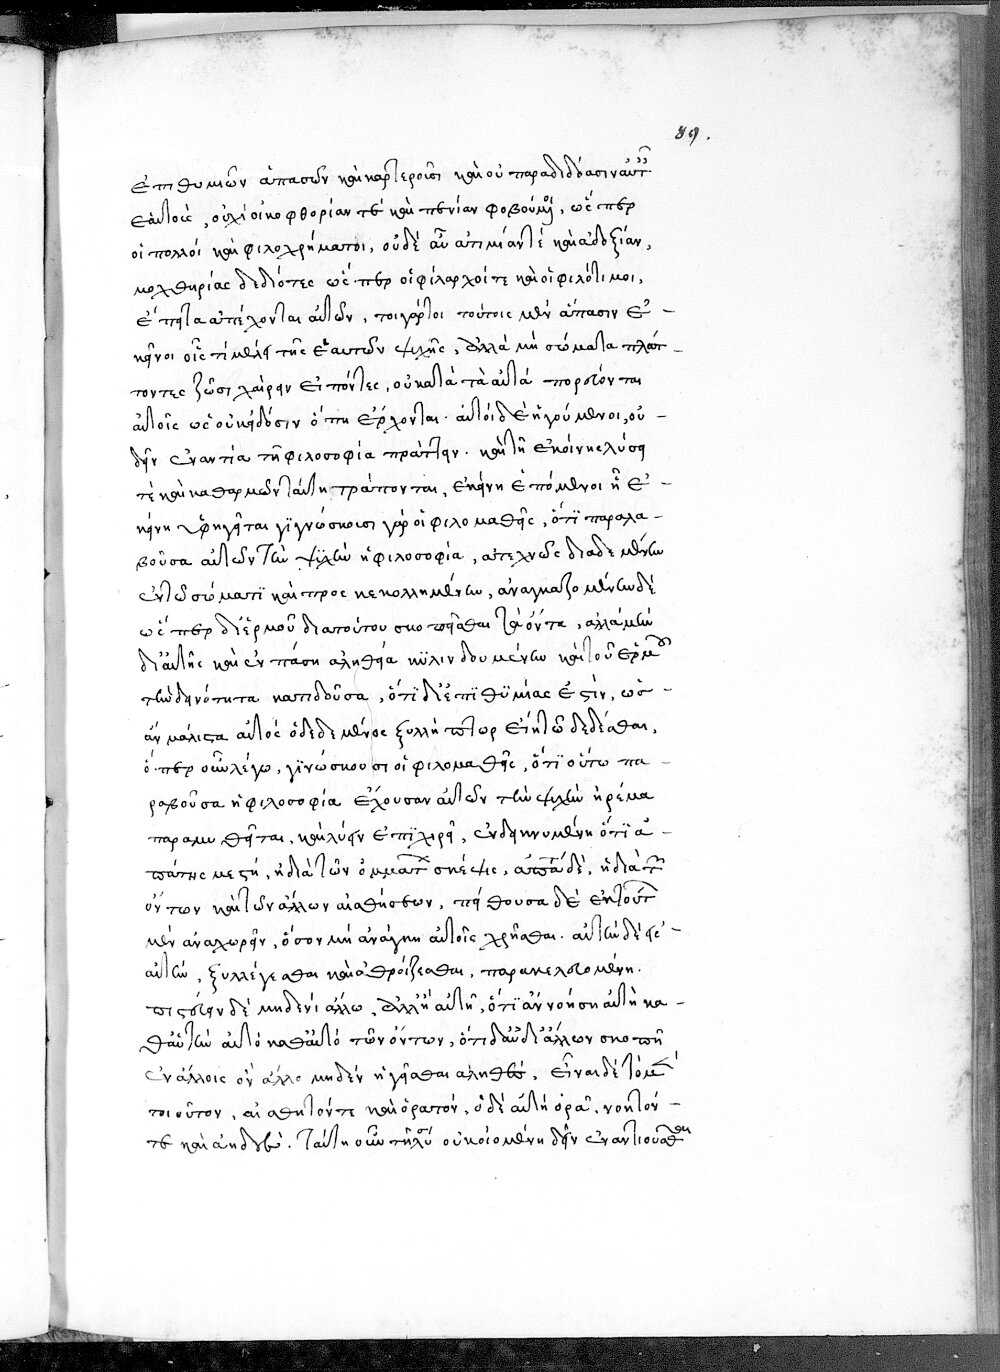 89.
ἐπιθυμιῶν ἁπασῶν καὶ καρτεροῦσι καὶ οὐ παραδιδόασιν αὐταῖς
ἑαυτούς, οὐχὶ οἰκοφθορίαν τε καὶ πενίαν φοβούμενοι, ὥσπερ
οἱ πολλοὶ καὶ φιλοχρήματοι, οὐδὲ αὖ ἀτιμίαν τὲ καὶ ἀδοξίαν,
μοχθηρίας δεδιότες ὥσπερ οἱ φίλαρχοί τε καὶ οἱ φιλότιμοι,
ἔπειτα ἀπέχονται αὐτῶν, τοιγάρτοι τούτοις μὲν ἅπασιν ἐ-
κεῖνοι οἷς τί μέλει τῆς ἑαυτῶν ψυχῆς, ἀλλὰ μὴ σώματα πλάτ-
τοντες ζῶσι χαίρειν εἰπόντες, οὐ κατὰ τὰ αὐτὰ πορεύονται
αὐτοῖς ὡς οὐκ εἰδόσιν ὅπη ἔρχονται· αὐτοὶ δὲ ἡγούμενοι, οὐ-
δεῖν ἐναντία τῆ φιλοσοφία πράττειν· καὶ τῆ ἐκείνης λύσει
τὲ καὶ καθαρμῶ ταύτη τρέπονται, ἐκείνη ἑπόμενοι ἧ ἐ-
κείνη ὑφηγεῖται γιγνώσκουσι γὰρ οἱ φιλομαθεῖς, ὅτι παραλα-
βοῦσα αὐτῶν τὴν ψυχὴν ἡ φιλοσοφία, ἀτεχνῶς διαδεμένην
ἐν τῶ σώματι καὶ προσκεκολλημένην, ἀναγκαζομένην δὲ
ὥσπερ δι' εἱρμοῦ διὰ τούτου σκοπεῖσθαι τὰ ὄντα, ἀλλὰ μὴ
δι' αὐτῆς καὶ ἐν πάση ἀληθεία κυλινδουμένην καὶ τοῦ εἱρμοῦ
τὴν δεινότητα κατιδοῦσα, ὅτι δι' ἐπιθυμίας ἐστίν, ὡς
ἂν μάλιστα αὐτὸς ὁ δεδεμένος ξυλλήπτωρ εἴη τῶ δεδέσθαι,
ὅπερ οὖν λέγω, γινώσκουσι οἱ φιλομαθεῖς, ὅτι οὕτω πα-
ραβοῦσα ἡ φιλοσοφία ἔχουσαν αὐτῶν τὴν ψυχὴν ἠρέμα
παραμυθεῖται, καὶ λύειν ἐπιχειρεῖ, ἐνδεικνυμένη ὅτι ἀ-
πάτης μεστὴ, ἡ διὰ τῶν ὀμμάτων σκέψις, ἀπάτη δὲ, ἡ διὰ τῶν
ὄντων καὶ τῶν ἄλλων αἰσθήσεων, πείθουσα δὲ ἐκ τούτων
μὲν ἀναχωρεῖν, ὅσον μὴ ἀνάγκη αὐτοῖς χρῆσθαι· αὐτὴν δὲ εἰς
αὑτὴν, ξυλλέγεσθαι καὶ ἀθροίζεσθαι, παρακελευομένη·
πιστεύειν δὲ μηδενὶ ἄλλω, ἀλλ' ἢ αὐτῆ, ὅτι ἂν νοήση αὐτὴ κα-
θ' αὑτὴν αὐτὸ καθ' αὑτὸ τῶν ὄντων, ὅτι δ' ἂν δι' ἄλλων σκοπῆ
ἐν ἄλλοις ὂν ἄλλο μηδὲν ἡγεῖσθαι ἀληθὲς, εἶναι δὲ τὸ μὲν
τοιοῦτον, αἰσθητόν τε καὶ ὁρατόν, ὃ δὲ αὐτὴ ὁρᾶ, νοητόν
τε καὶ ἀειδὲς. ταύτη οὖν τῆ λύσει οὐκ οἰομένη δεῖν ἐναντιοῦσθαι